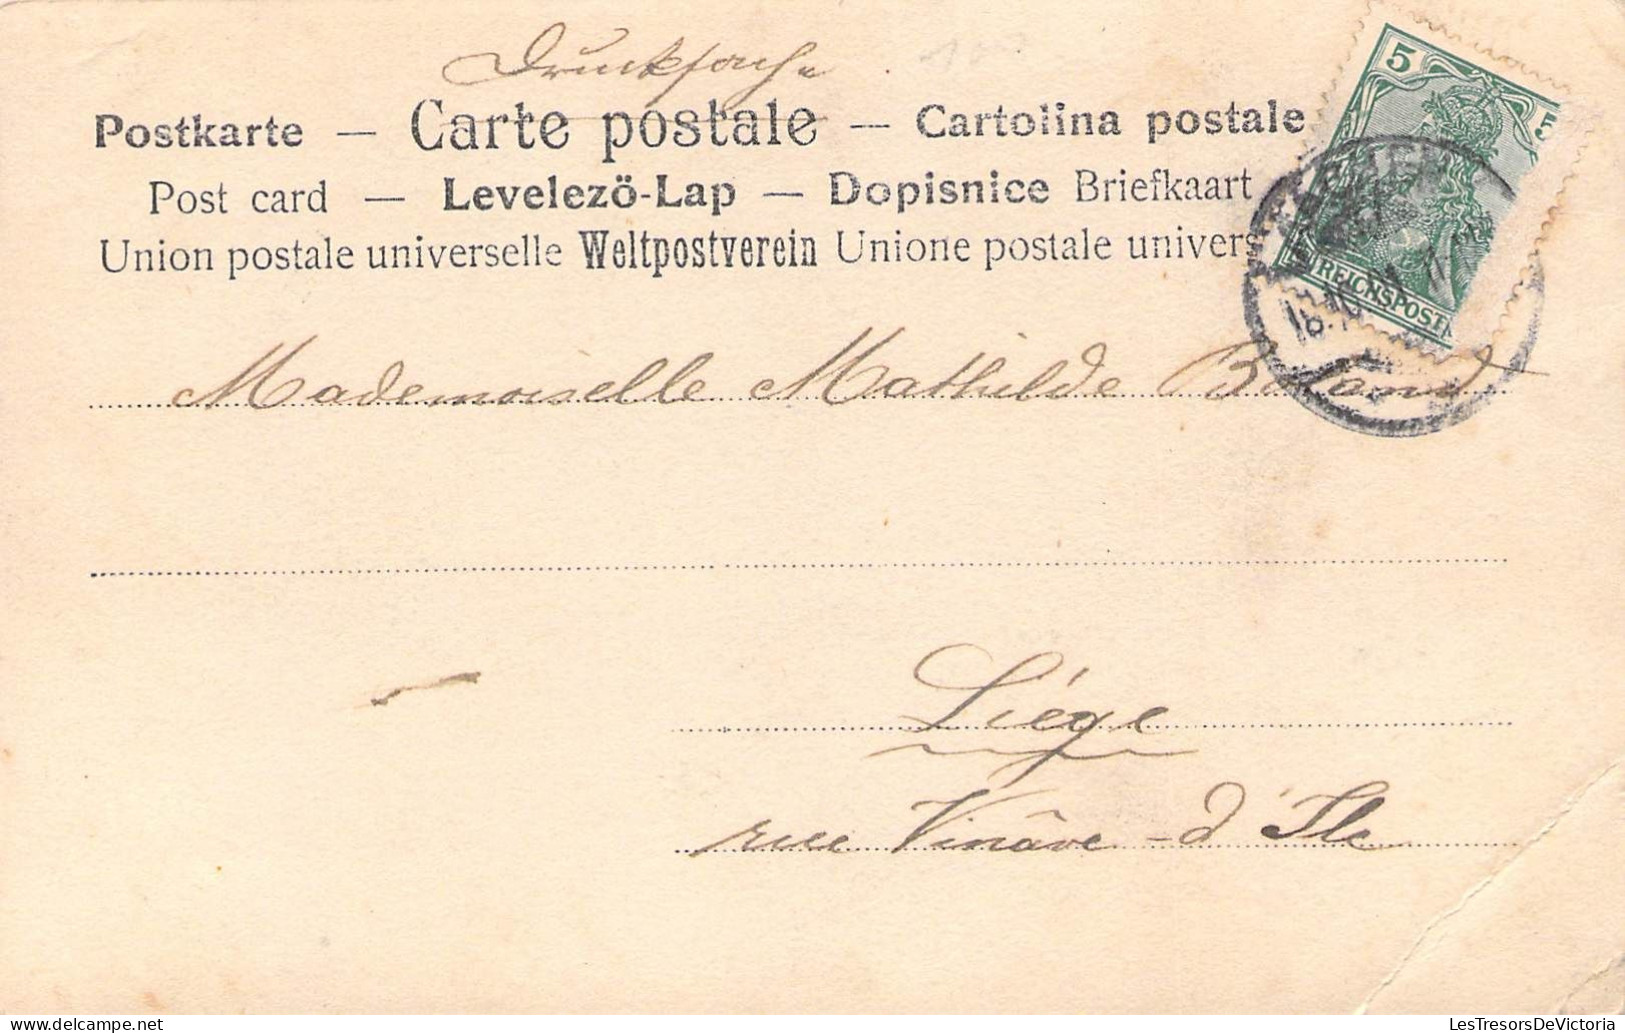 Drucksache
Postkarte — Carte postale — Cartolina postale
Post card — Levelezö-Lap — Dopisnice Briefkaart
Union postale universelle Weltpostverein Unione postale univers
5 5
REICHSPOST
Mademoiselle Mathilde
Liége
rue Vinâve-d'Ile
LesTresorsDeVictoria